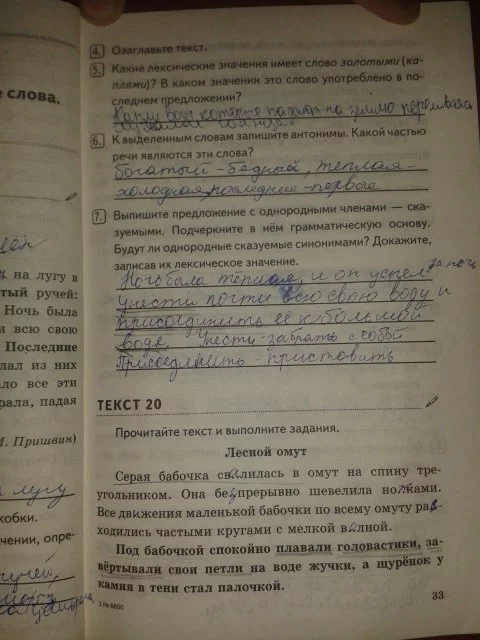 4. Озаглавьте текст.
5. Какие лексические значения имеет слово золотыми (ка-
плями)? В каком значении это слово употреблено в по-
следнем предложении?
Капли воды которые падают на землю переливаясь
6. К выделенным словам запишите антонимы. Какой частью
речи являются эти слова?
богатый - бедный, теплая -
холодная, последние - первые
7. Выпишите предложение с однородными членами — ска-
зуемыми. Подчеркните в нём грамматическую основу.
Будут ли однородные сказуемые синонимами? Докажите,
записав их лексическое значение.
Ночь была тёплая, и он успел за ночь
унести почти всю свою воду и
присоединить её к большой
воде. Унести - забрать с собой
Присоединить - приставить
ТЕКСТ 20
Прочитайте текст и выполните задания.
Лесной омут
Серая бабочка свалилась в омут на спину тре-
угольником. Она беспрерывно шевелила ножками.
Все движения маленькой бабочки по всему омуту рас-
ходились частыми кругами с мелкой волной.
Под бабочкой спокойно плавали головастики, за-
вёртывали свои петли на воде жучки, а щурёнок у
камня в тени стал палочкой.
2 № 6850
33
е слова.
на лугу в
тый ручей:
Ночь была
и всю свою
Последние
лал из них
ло все эти
рала, падая
М. Пришвин)
лугу
кобки.
чении, опре-